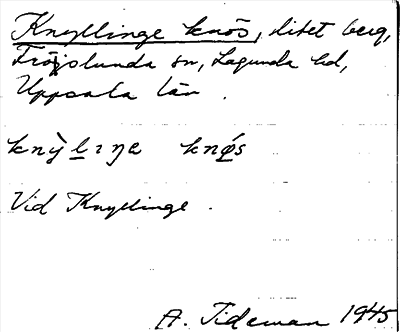 Knyllinge knös, litet berg,
Fröslunda sn, Lagunda hd,
Uppsala län.
knỳlıŋe knǿs
Vid Knyllinge.
A. Tideman 1945